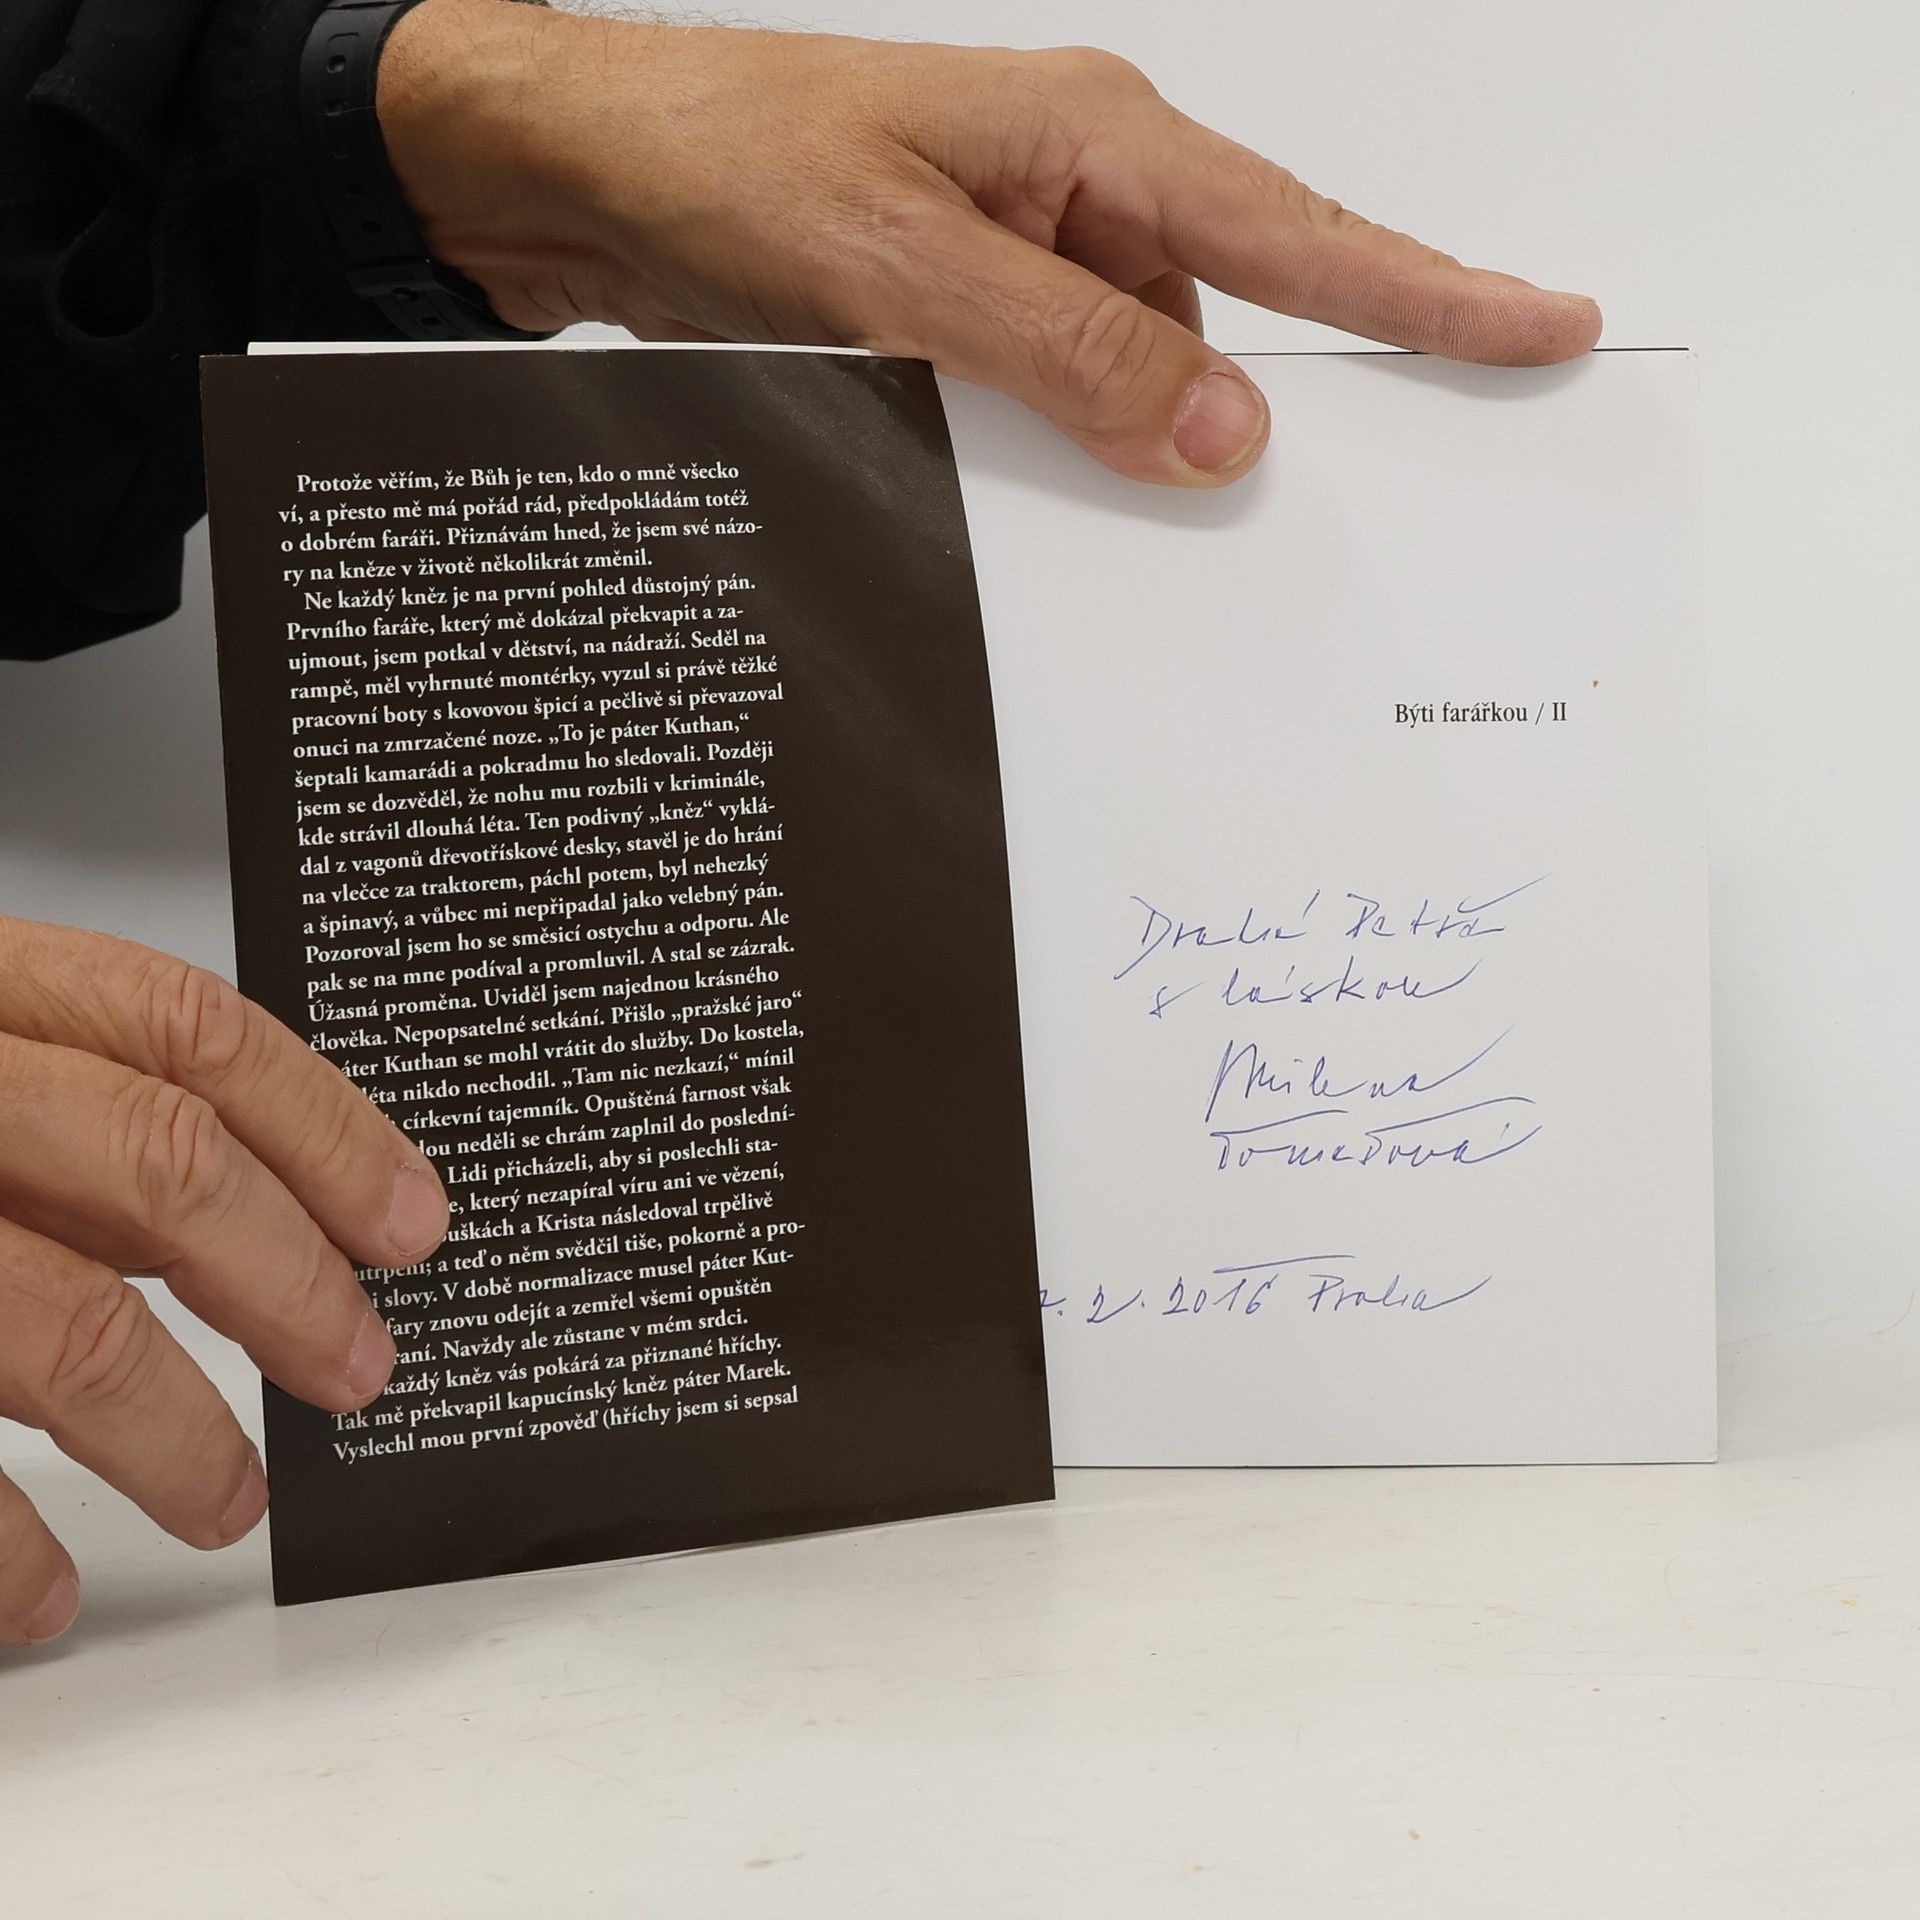 Protože věřím, že Bůh je ten, kdo o mně všecko
ví, a přesto mě má pořád rád, předpokládám totéž
o dobrém faráři. Přiznávám hned, že jsem své názo-
ry na kněze v životě několikrát změnil.
Ne každý kněz je na první pohled důstojný pán.
Prvního faráře, který mě dokázal překvapit a za-
ujmout, jsem potkal v dětství, na nádraží. Seděl na
rampě, měl vyhrnuté montérky, vyzul si právě těžké
pracovní boty s kovovou špicí a pečlivě si převazoval
onuci na zmrzačené noze. „To je páter Kuthan,“
šeptali kamarádi a pokradmu ho sledovali. Později
jsem se dozvěděl, že nohu mu rozbili v kriminále,
kde strávil dlouhá léta. Ten podivný „kněz“ vyklá-
dal z vagonů dřevotřískové desky, stavěl je do hrání
na vlečce za traktorem, páchl potem, byl nehezký
a špinavý, a vůbec mi nepřipadal jako velebný pán.
Pozoroval jsem ho se směsicí ostychu a odporu. Ale
pak se na mne podíval a promluvil. A stal se zázrak.
Úžasná proměna. Uviděl jsem najednou krásného
člověka. Nepopsatelné setkání. Přišlo „pražské jaro“
áter Kuthan se mohl vrátit do služby. Do kostela,
léta nikdo nechodil. „Tam nic nezkazí,“ mínil
církevní tajemník. Opuštěná farnost však
dou neděli se chrám zaplnil do poslední-
Lidi přicházeli, aby si poslechli sta-
e, který nezapíral víru ani ve vězení,
ouškách a Krista následoval trpělivě
utrpení; a teď o něm svědčil tiše, pokorně a pro-
i slovy. V době normalizace musel páter Kut-
fary znovu odejít a zemřel všemi opuštěn
raní. Navždy ale zůstane v mém srdci.
každý kněz vás pokárá za přiznané hříchy.
Tak mě překvapil kapucínský kněz páter Marek.
Vyslechl mou první zpověď (hříchy jsem si sepsal
Býti farářkou / II
Drahá Petře
s láskou
Milena
Tomešová
. 2. 2016 Praha